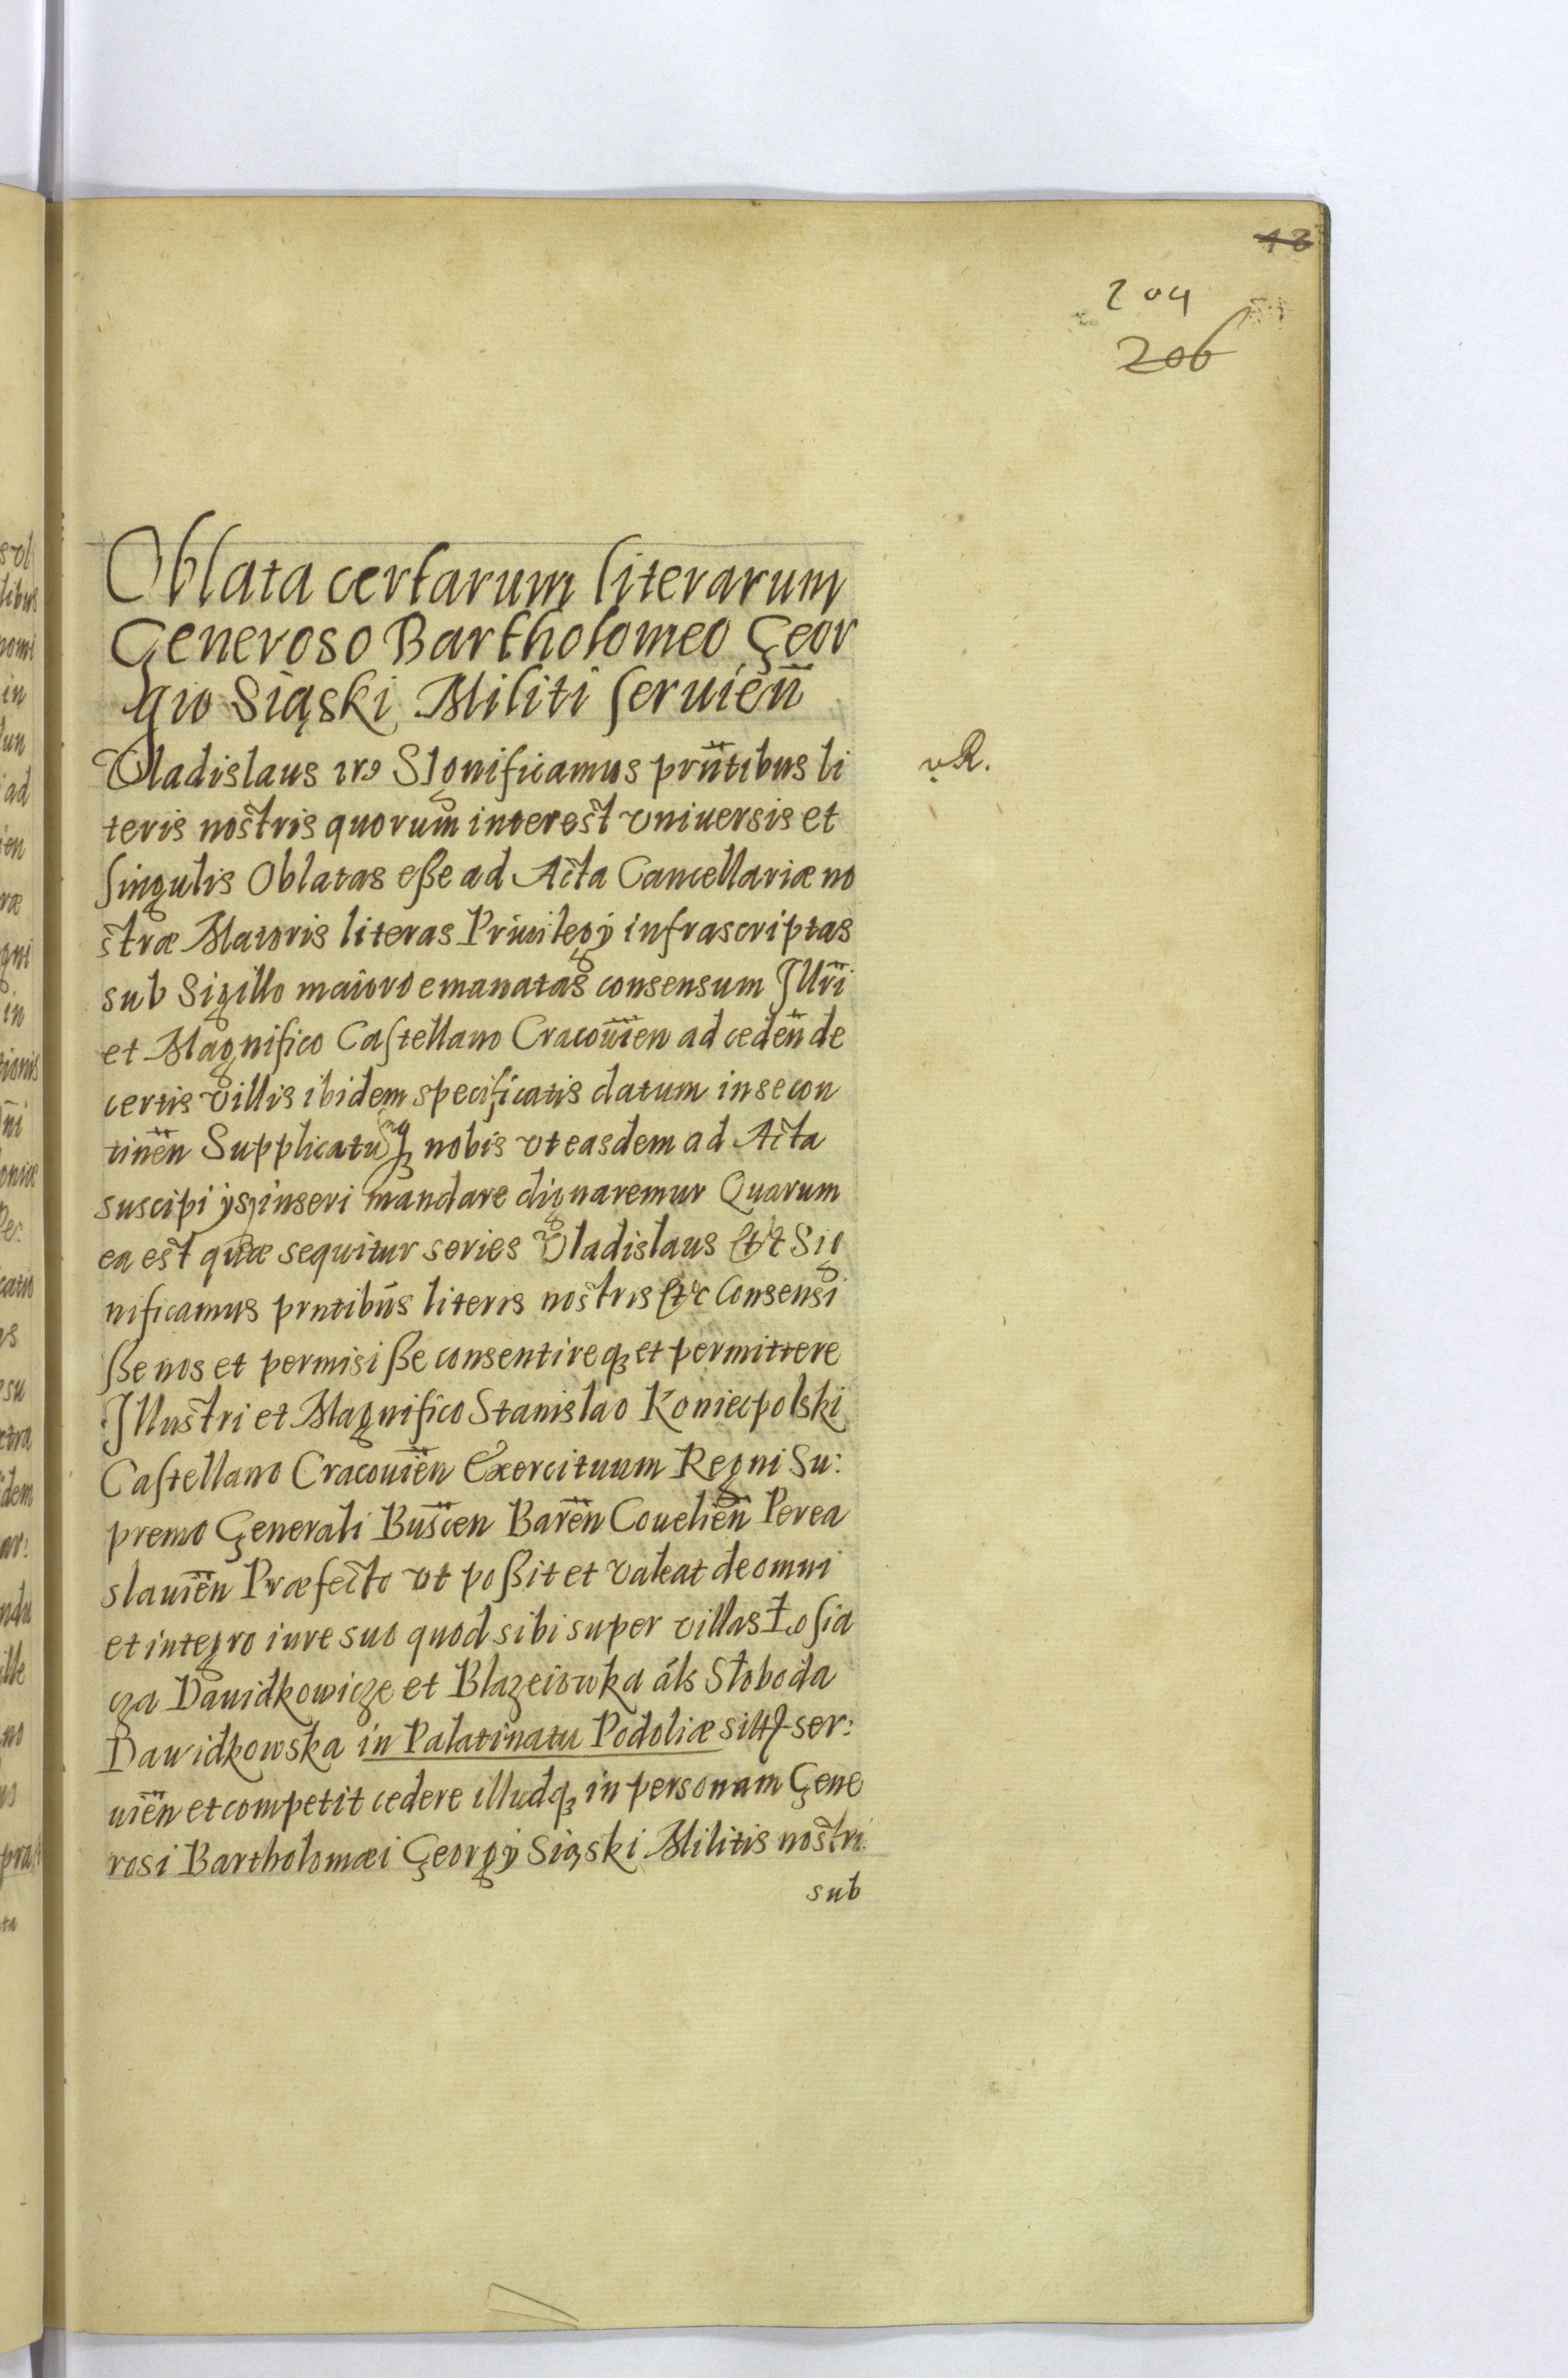 18
204
206
Oblata certarum literarum
Generoso Bartholomeo Geor
gio Siąski Militi seruien̄
Vladislaus Significamus prn̄tibus li
teris nostris quorum interest vniuersis et
singulis Oblatas eße ad Acta Cancellariæ no
stræ Maioris literas Priuilegÿ infrascriptas
sub Sigillo maiore emanatas consensum Illri
et Magnifico Castellano Cracouien ad ceden̄ de
certis villis ibidem specificatis datum in se con
tinen̄ Supplicatuq₃ nobis vt easdem ad Acta
suscipi ÿsq₃ inseri mandare dignaremur Quarum
ea est quæ sequitur series Vladislaus etc Sig
nificamus prntibus literis nostris etc Consensi
ße nos et permisiße consentireq₃ et permittere
Illustri et Magnifico Stanislao Koniecpolski
Castellano Cracouien̄ Exercituum Regni Su:
premo Generali Buscen Baren̄ Couelien̄ Perea
slauien̄ Præfecto vt poßit et valeat de omni
et integro iure suo quod sibi super villas Łosia
cza Dauidkowicze et Blazeiowka als Słoboda
Dawidkowska in Palatinatu Podoliæ sitt ser:
uien̄ et competit cedere illudq₃ in personam Gene
rosi Bartholomæi Georgÿ Siąski Militis nostri
sub
vR.